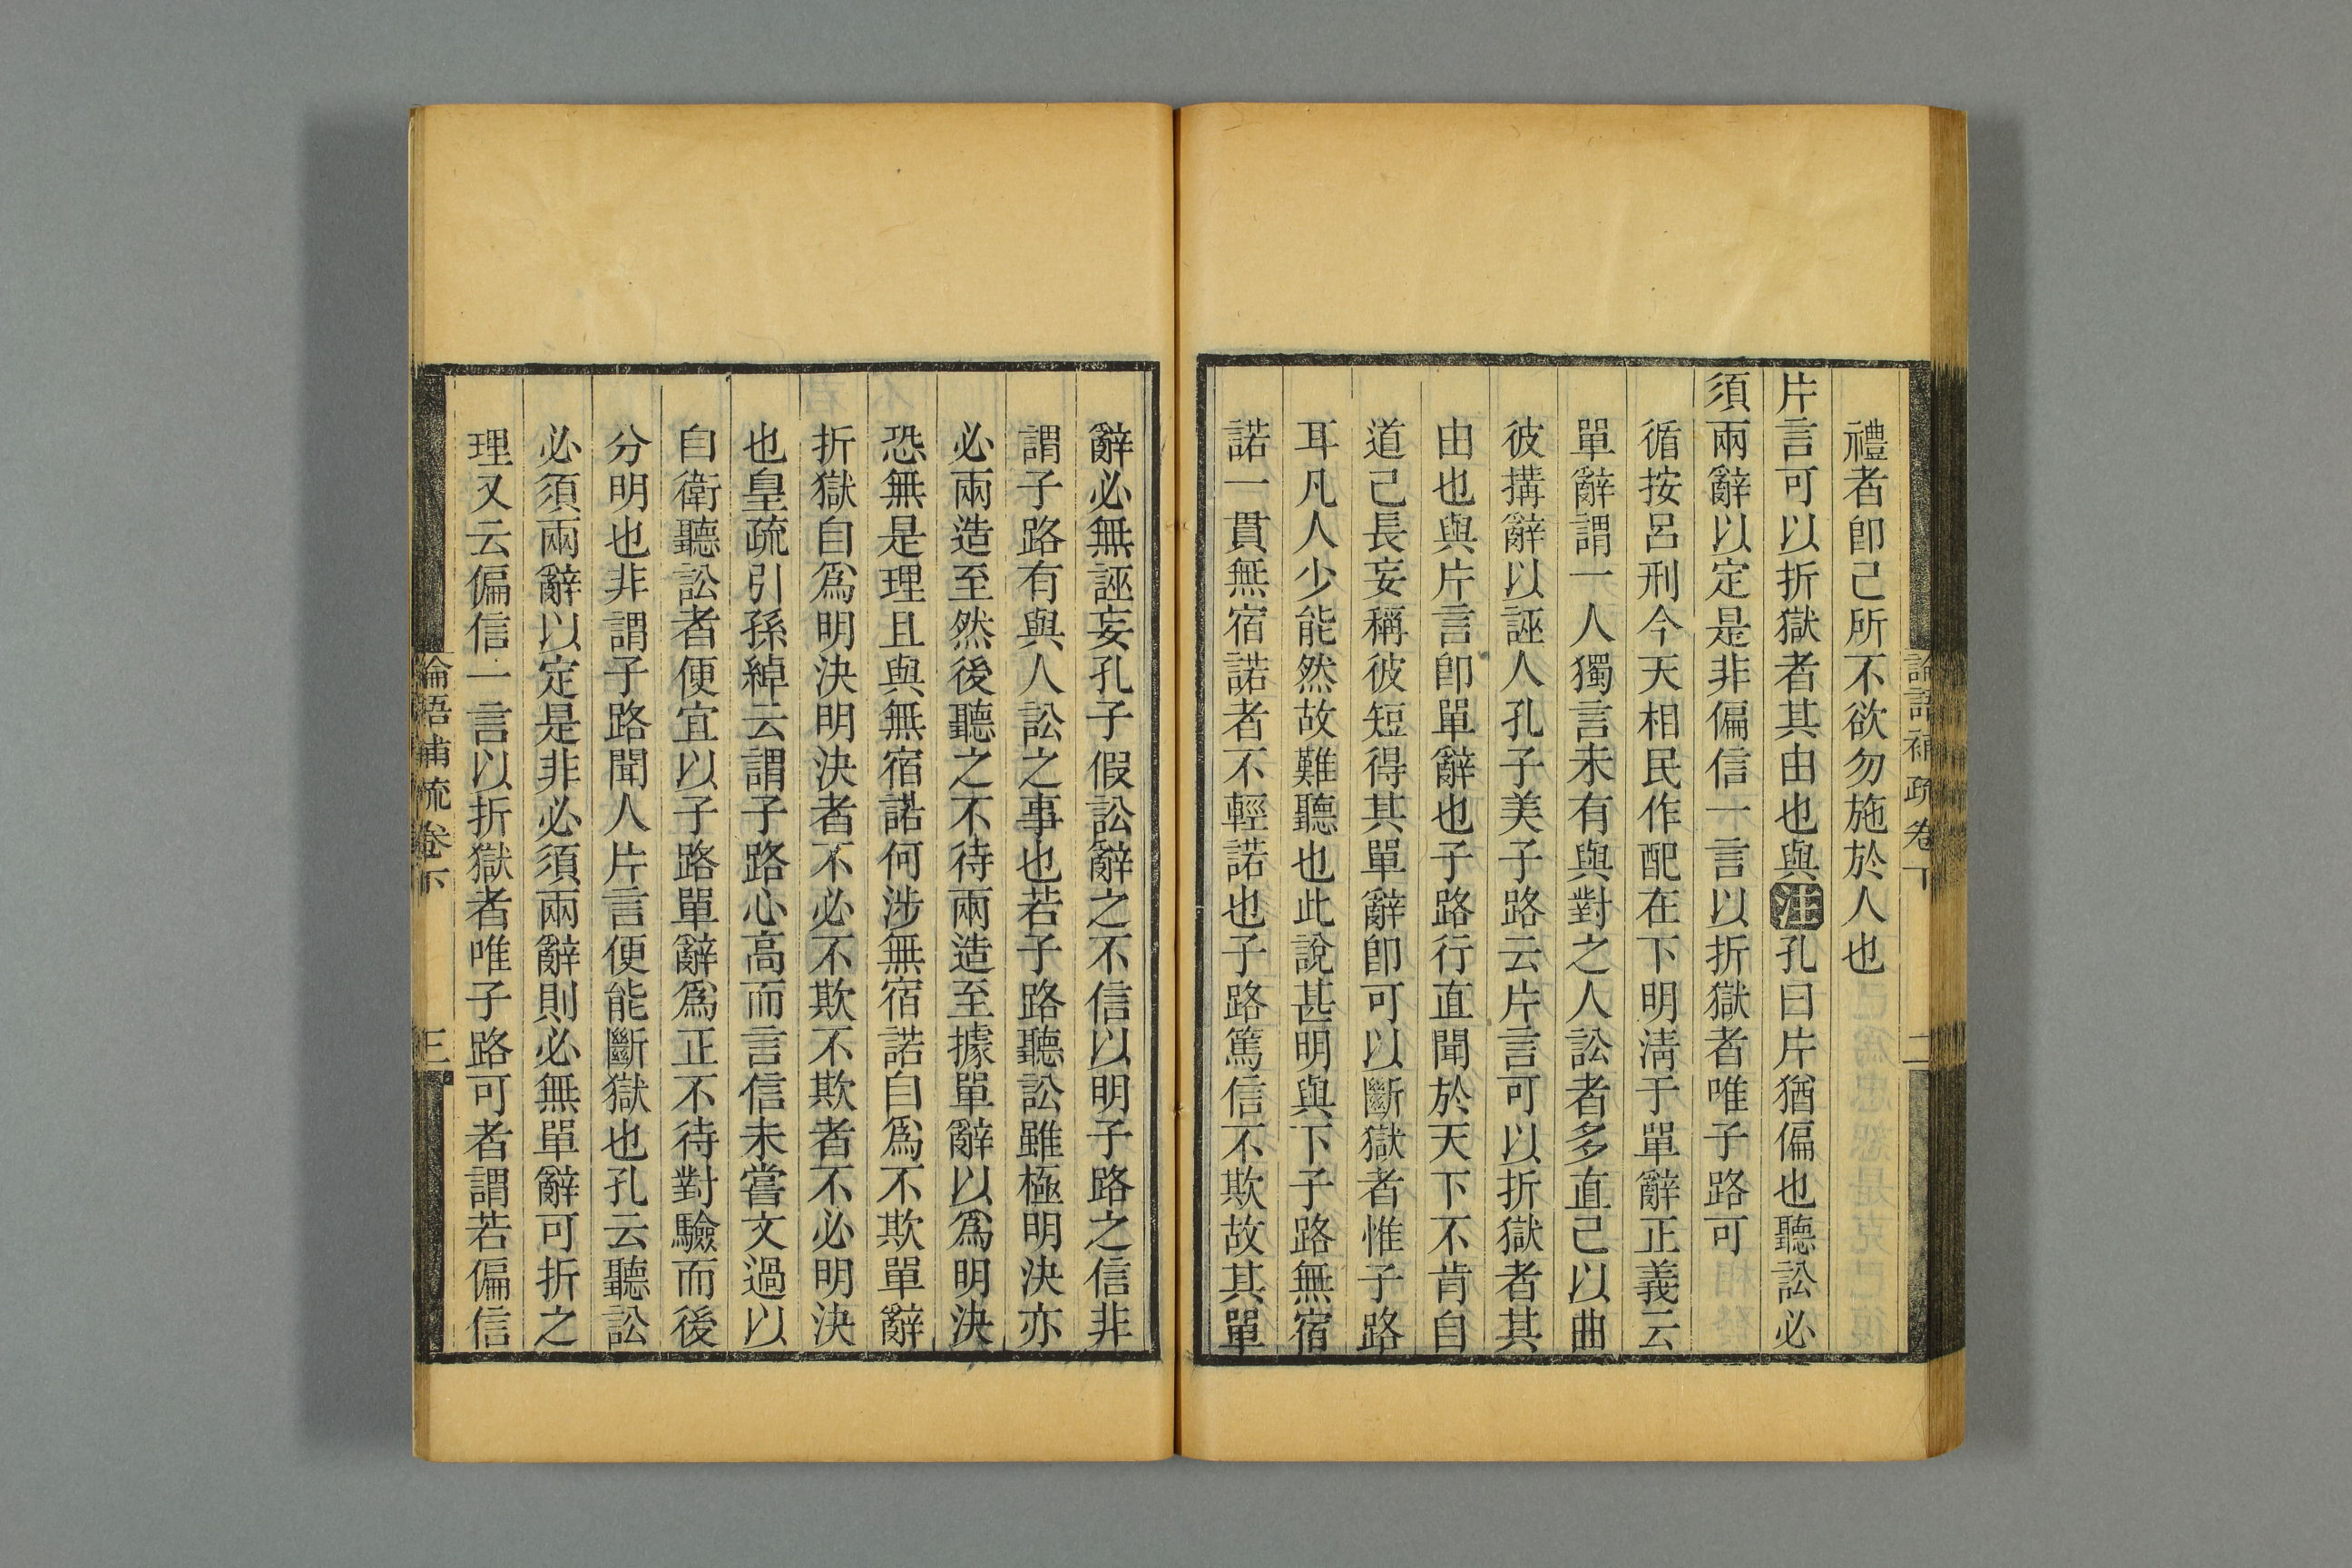 論語補疏卷下 二
禮者卽己所不欲勿施於人也
片言可以折獄者其由也與注孔曰片猶偏也聽訟必
須兩辭以定是非偏信一言以折獄者唯子路可
循按呂刑今天相民作配在下明淸于單辭正義云
單辭謂一人獨言未有與對之人訟者多直己以曲
彼搆辭以誣人孔子美子路云片言可以折獄者其
由也與片言卽單辭也子路行直聞於天下不肯自
道己長妄稱彼短得其單辭卽可以斷獄者惟子路
耳凡人少能然故難聽也此說甚明與下子路無宿
諾一貫無宿諾者不輕諾也子路篤信不欺故其單
辭必無誣妄孔子假訟辭之不信以明子路之信非
謂子路有與人訟之事也若子路聽訟雖極明決亦
必兩造至然後聽之不待兩造至據單辭以爲明決
恐無是理且與無宿諾何涉無宿諾自爲不欺單辭
折獄自爲明決明決者不必不欺不欺者不必明決
也皇疏引孫綽云謂子路心高而言信未嘗文過以
自衛聽訟者便宜以子路單辭爲正不待對驗而後
分明也非謂子路聞人片言便能斷獄也孔云聽訟
必須兩辭以定是非必須兩辭則必無單辭可折之
理又云偏信一言以折獄者唯子路可者謂若偏信
論語補疏卷下 三